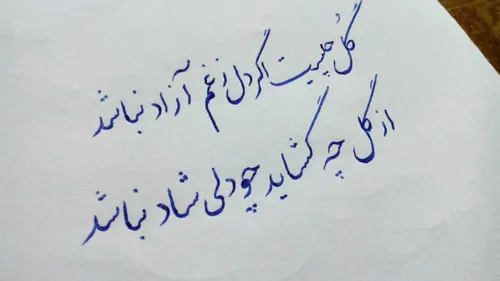 گل چیست اگر دل ز غم آزاد نباشد
از گل چه گشاید چو دلی شاد نباشد